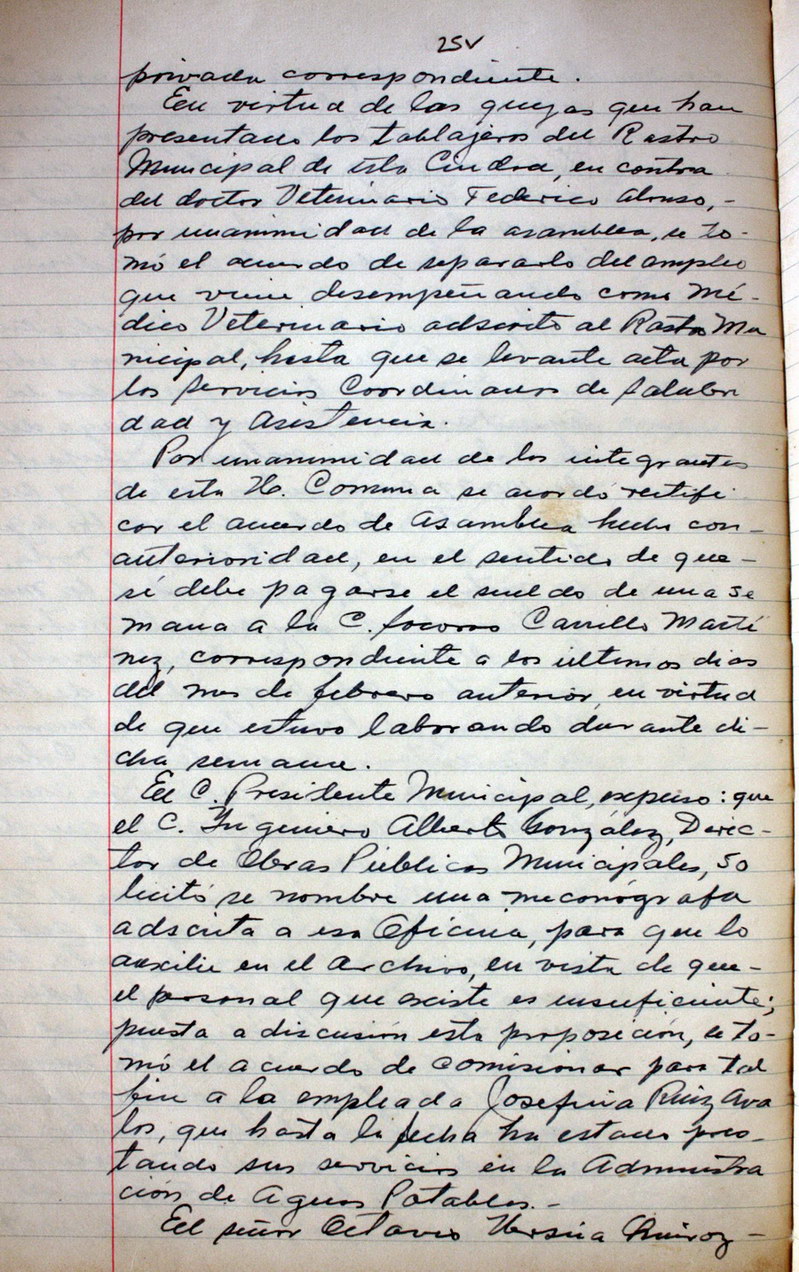 25V
privada correspondiente.
En virtud de las quejas que han
presentado los tablajeros del Rastro
Municipal de esta Ciudad, en contra
del doctor Veterinario Federico Alonso,-
por unanimidad de la asamblea, se to-
mó el acuerdo de separarlo del empleo
que viene desempeñando como Mé-
dico Veterinario adscrito al Rastro Mu
nicipal, hasta que se levante acta por
los Servicios Coordinados de Salubri
dad y Asistencia.
Por unanimidad de los integrantes
de esta H. Comuna se acordó rectifi
car el acuerdo de Asamblea hecho con-
anterioridad, en el sentido de que-
sí debe pagarse el sueldo de una se
mana a la C. Socorro Carrillo Martí
nez, correspondiente a los últimos días
del mes de febrero anterior, en virtud
de que estuvo laborando durante di-
cha semana.
El C. Presidente Municipal, expuso: que
el C. Ingeniero Alberto González, Direc-
tor de Obras Públicas Municipales, so
licitó se nombre una mecanógrafa
adscrita a esa Oficina, para que lo
auxilie en el Archivo, en vista de que-
el personal que existe es insuficiente;
puesta a discusión esta proposición, se to-
mó el acuerdo de comisionar para tal
fin a la empleada Josefina Ruiz Ava
los, que hasta la fecha ha estado pres-
tando sus servicios en la Administra
ción de Aguas Potables.-
El señor Octavio Quiroz-